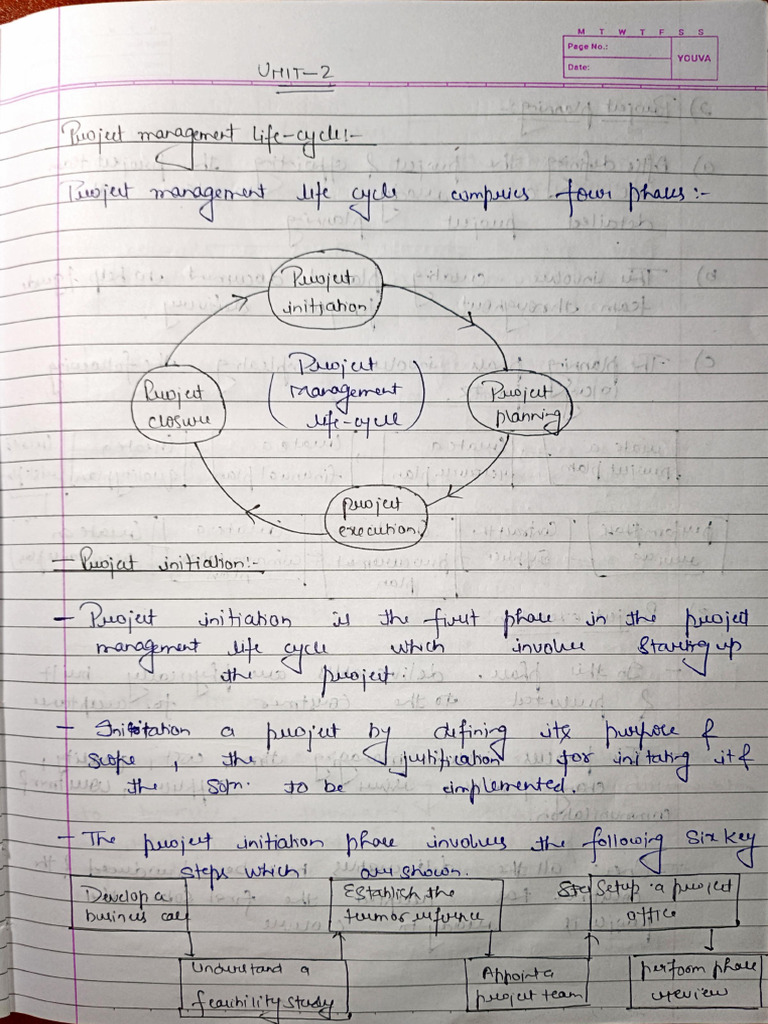 M T W T F S S
Page No.:
YOUVA
Date:
UNIT-2
Project management life-cycle:-
Project management life cycle compries four phases:-
Project
initiation
Project
Management
life-cycle
Project
closure
Project
planning
project
execution
- Project initiation:-
- Project initiation is the first phase in the project
management life cycle which involve starting up
the project.
- Initation a project by defining its purpose &
scope, the justification for initating it &
the soln. to be implemented.
- The project initiation phase involves the following six key
steps which are shown.
Develop a
busines case
Establish the
term or reference
Setup a project
office
Understand a
feasibility study
Appoint a
project team
perform phase
review